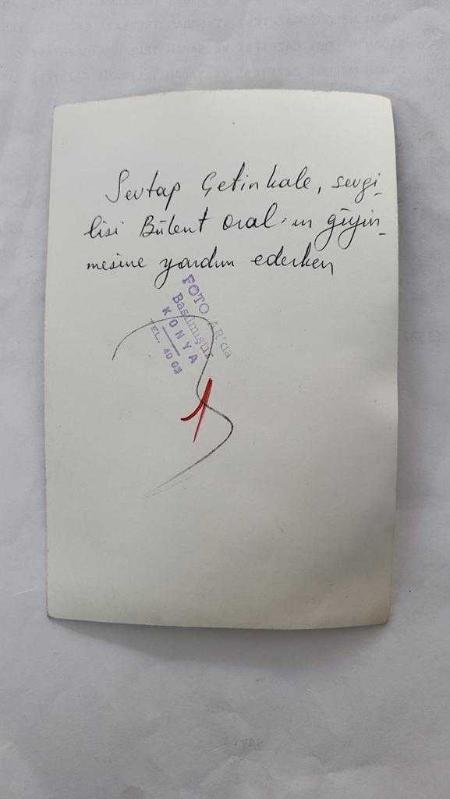 Sevtap Çetinkale, sevgi-
lisi Bülent Oral'ın giyin-
mesine yardım ederken
FOTO AR'da
Basılmıştır
KONYA
TEL. 40 03
1